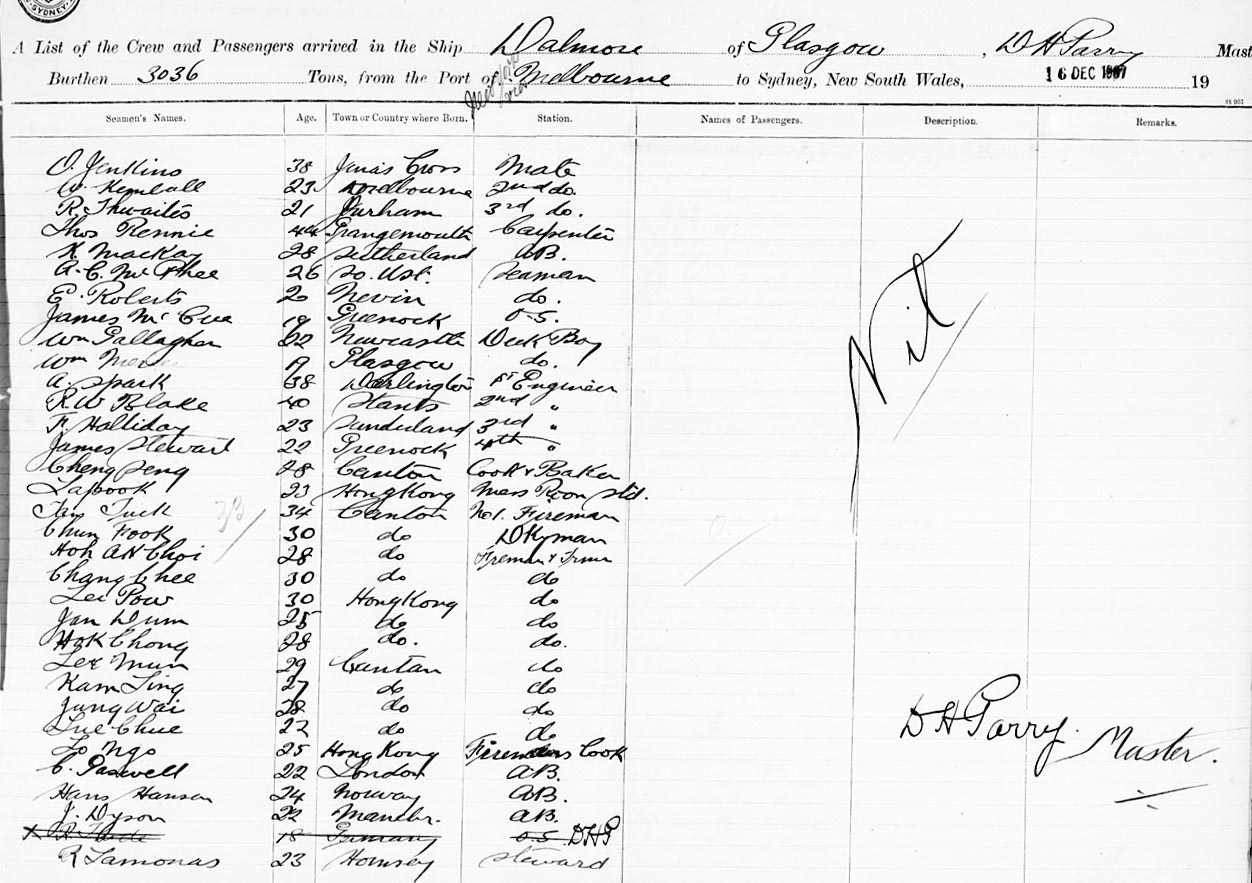 SYDNEY
A List of the Crew and Passengers arrived in the Ship Dalmore of Glasgow, D H Parry Mast
Burthen 3036 Tons, from the Port of Melbourne to Sydney, New South Wales, 16 DEC 1907 19
Seamen's Names. Age. Town or Country where Born. Station. Names of Passengers. Description. Remarks.
O. Jenkins 38 Cross Mate
W. Kendall 23 Melbourne 2nd do.
R. Thwaites 21 Durham 3rd do.
Thos Rennie 44 Grangemouth Carpenter
K Mackay 28 Sutherland AB.
A. C. McPhee 26 So. Ust. Seaman
E. Roberts 20 Nevin do.
James McCue 19 Greenock O.S.
Wm Gallagher 22 Newcastle Deck Boy
Wm Glasgow do.
A. Spark 38 Darlington 1st Engineer
R W Blake 40 Hants 2nd "
F. Halliday 23 Sunderland 3rd "
James Stewart 22 Greenock 4th "
Cheng Seng 28 Canton Cook & Baker
Lapook 23 Hong Kong Mess Room Std.
Tuck 34 Canton No 1. Fireman
Chun Fook 30 do DKyman
Hoh Ah Choi 28 do Fireman & Trimr
Chang Chee 30 do do
Lei Pow 30 Hong Kong do
Jan Dum 25 do do
Hok Chong 28 do. do.
Lee Mun 29 Canton do
Kam Ling 27 do do
Jung Wai 28 do do
Lue Chue 22 do do
Lo Ngo 25 Hong Kong Firemens Cook
C. 22 London AB.
Hans Hansen 24 Norway AB.
J. Dyson 22 Manchr. AB.
18 Germany O.S. DHP
R Samonas 23 Hornsey Steward
Nil
D H Parry. Master.